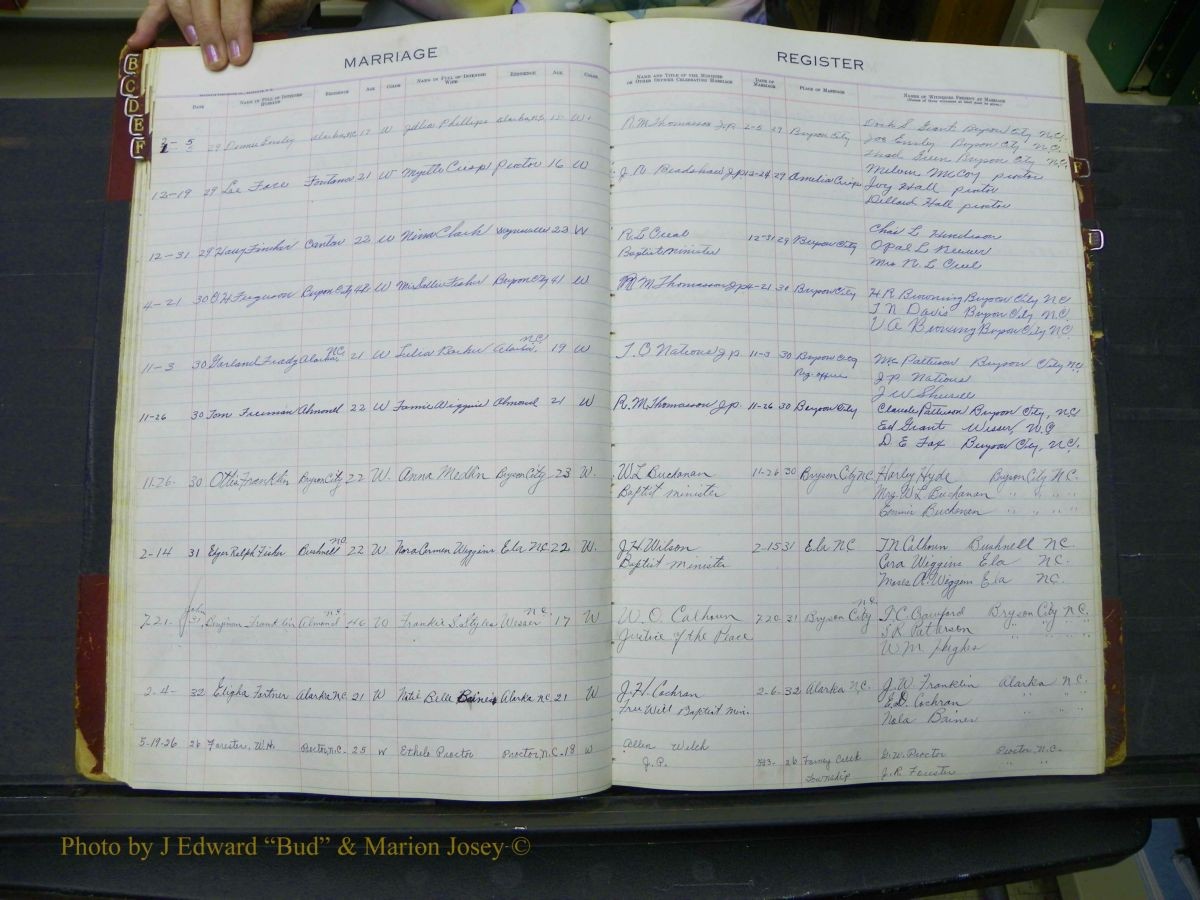 B
C
D
E
F
F
J
MARRIAGE
REGISTER
DATE
NAME IN FULL OF INTENDED HUSBAND
RESIDENCE
AGE
COLOR
NAME IN FULL OF INTENDED WIFE
RESIDENCE
AGE
COLOR
NAME AND TITLE OF THE MINISTER OR OTHER OFFICER CELEBRATING MARRIAGE
DATE OF MARRIAGE
PLACE OF MARRIAGE
NAMES OF WITNESSES PRESENT AT MARRIAGE
2-5 29 Ensley Alarka NC 17 W Julia Phillips Alarka NC W R.M Thomasson J.p. 2-5 29 Bryson City Grant Bryson City N.C.
Joe Ensley Bryson City N.C.
Green Bryson City N.C.
12-19 29 Lee Fontana 21 W Myrtle Crisp Proctor 16 W J. R Bradshaw J.p 12-24 29 Amelia Crisps Melvin McCoy proctor
Hall proctor
Dillard Hall proctor
12-31 29 Fincher Canton 22 W Nina Clark Waynesville 23 W R.L Creal 12-31 29 Bryson City Chas L. Henderson
Baptist minister Opal L
Mrs R. L Creel
4-21 30 O.H Ferguson Bryson City W Mrs Sallie Fisher Bryson City 41 W R M Thomasson J.p 4-21 30 Bryson City H R Browning Bryson City NC
T N Davis Bryson City N.C.
V A Browning Bryson City N.C.
11-3 30 Garland Frady Alarka N.C 21 W Barker Alarka N.C 19 W T. O Nations J.p. 11-3 30 Bryson City Mc Pattison Bryson City N.C.
Reg. office J.p Nations
J W
11-26 30 Tom Freeman Almond 22 W Fannie Wiggins Almond 21 W R.M Thomasson J.p. 11-26 30 Bryson City Claude Patterson Bryson City, N.C
Ed Grant Wesser, N.C
D. E. Fox Bryson City, N.C.
11-26- 30 Ottis Franklin Bryson City 22 W. Anna Medlin Bryson City 23 W. W L Buchanan 11-26 30 Bryson City N.C. Harley Hyde Bryson City N.C.
Baptist minister Mrs. W L Buchanan " " " "
Buchanan " " " "
2-14 31 Edgar Ralph Fisher Bushnell N.C 22 W Nora Carmen Wiggins Ela N.C 22 W. J.H. Wilson 2-15 31 Ela NC T.N Calhoun Bushnell N.C.
Baptist Minister Cora Wiggins Ela N.C.
Moses A. Wiggins Ela N.C.
7.21- 31 John Franklin Almond N.C 46 W Frankie S. Styles Wesser N.C. 17 W W. O. Calhoun 7.20 31 Bryson City N.C. T.C. Crawford Bryson City N.C.
Justice of the Peace Patterson " " "
W M Hughes
2-4- 32 Eligha Fortner Alarka N.C. 21 W Belle Baines Alarka N.C. 21 W J.H. Cochran 2-6-32 Alarka N.C. J.W. Franklin Alarka N.C.
Free Will Baptist Min. E.D. Cochran " "
Nola Brainer
5-19-26 26 Forester, W.H. Proctor N.C. 25 W Ethele Proctor Proctor N.C. 18 W Allen Welch 26 Forney Creek G.W. Proctor Proctor N.C.
J.P. Township J.R. Forester " "
Photo by J Edward “Bud” & Marion Josey ©